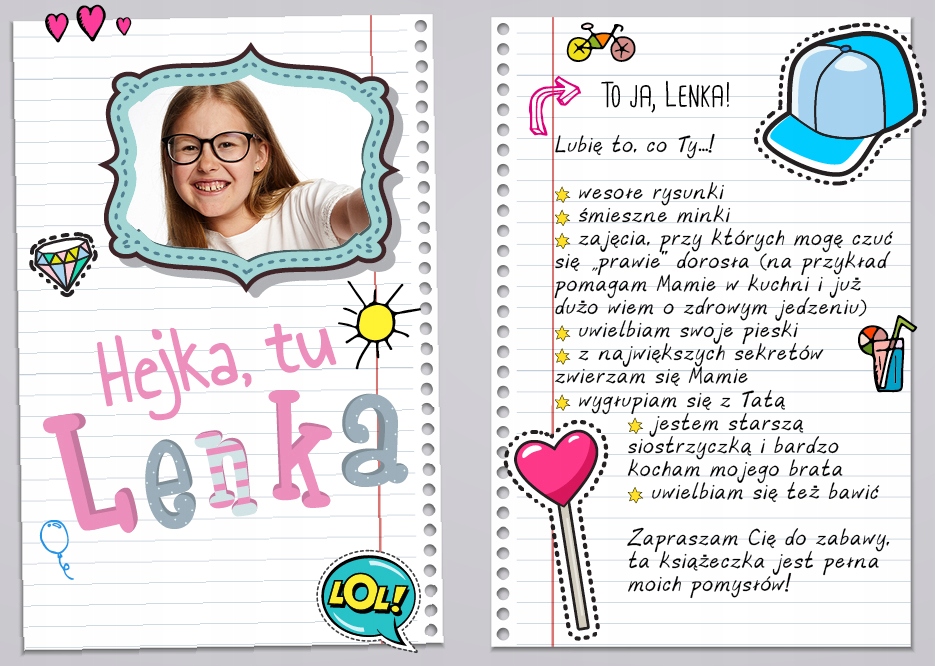 Hejka, tu
Lenka
LOL!
To ja, Lenka!
Lubię to, co Ty...!
wesołe rysunki
śmieszne minki
zajęcia, przy których mogę czuć
się „prawie” dorosła (na przykład
pomagam Mamie w kuchni i już
dużo wiem o zdrowym jedzeniu)
uwielbiam swoje pieski
z największych sekretów
zwierzam się Mamie
wygłupiam się z Tatą
jestem starszą
siostrzyczką i bardzo
kocham mojego brata
uwielbiam się też bawić
Zapraszam Cię do zabawy,
ta książeczka jest pełna
moich pomysłów!